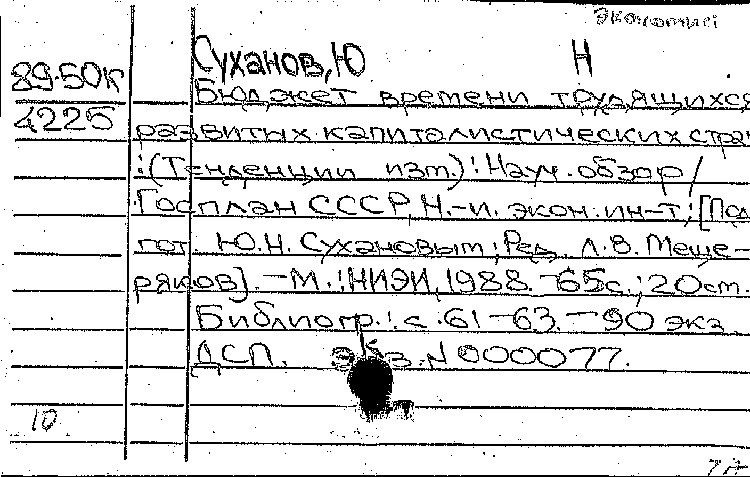 Суханов, Ю Н
89-50к
Бюджет времени трудящихся
4225
развитых капиталистических стран
:(Тенденции изт.) : Науч. обзор /
Госплан СССР, Н.-и. экон. ин-т; [Под
гот. Ю.Н. Сухановым; Ред. Л.В. Меще-
ряков]. - М. : НИЭИ, 1988. - 65с.; 20 ст.
Библиогр.: с. 61-63. - 90 экз
ДСП. Экз. N 000077.
10